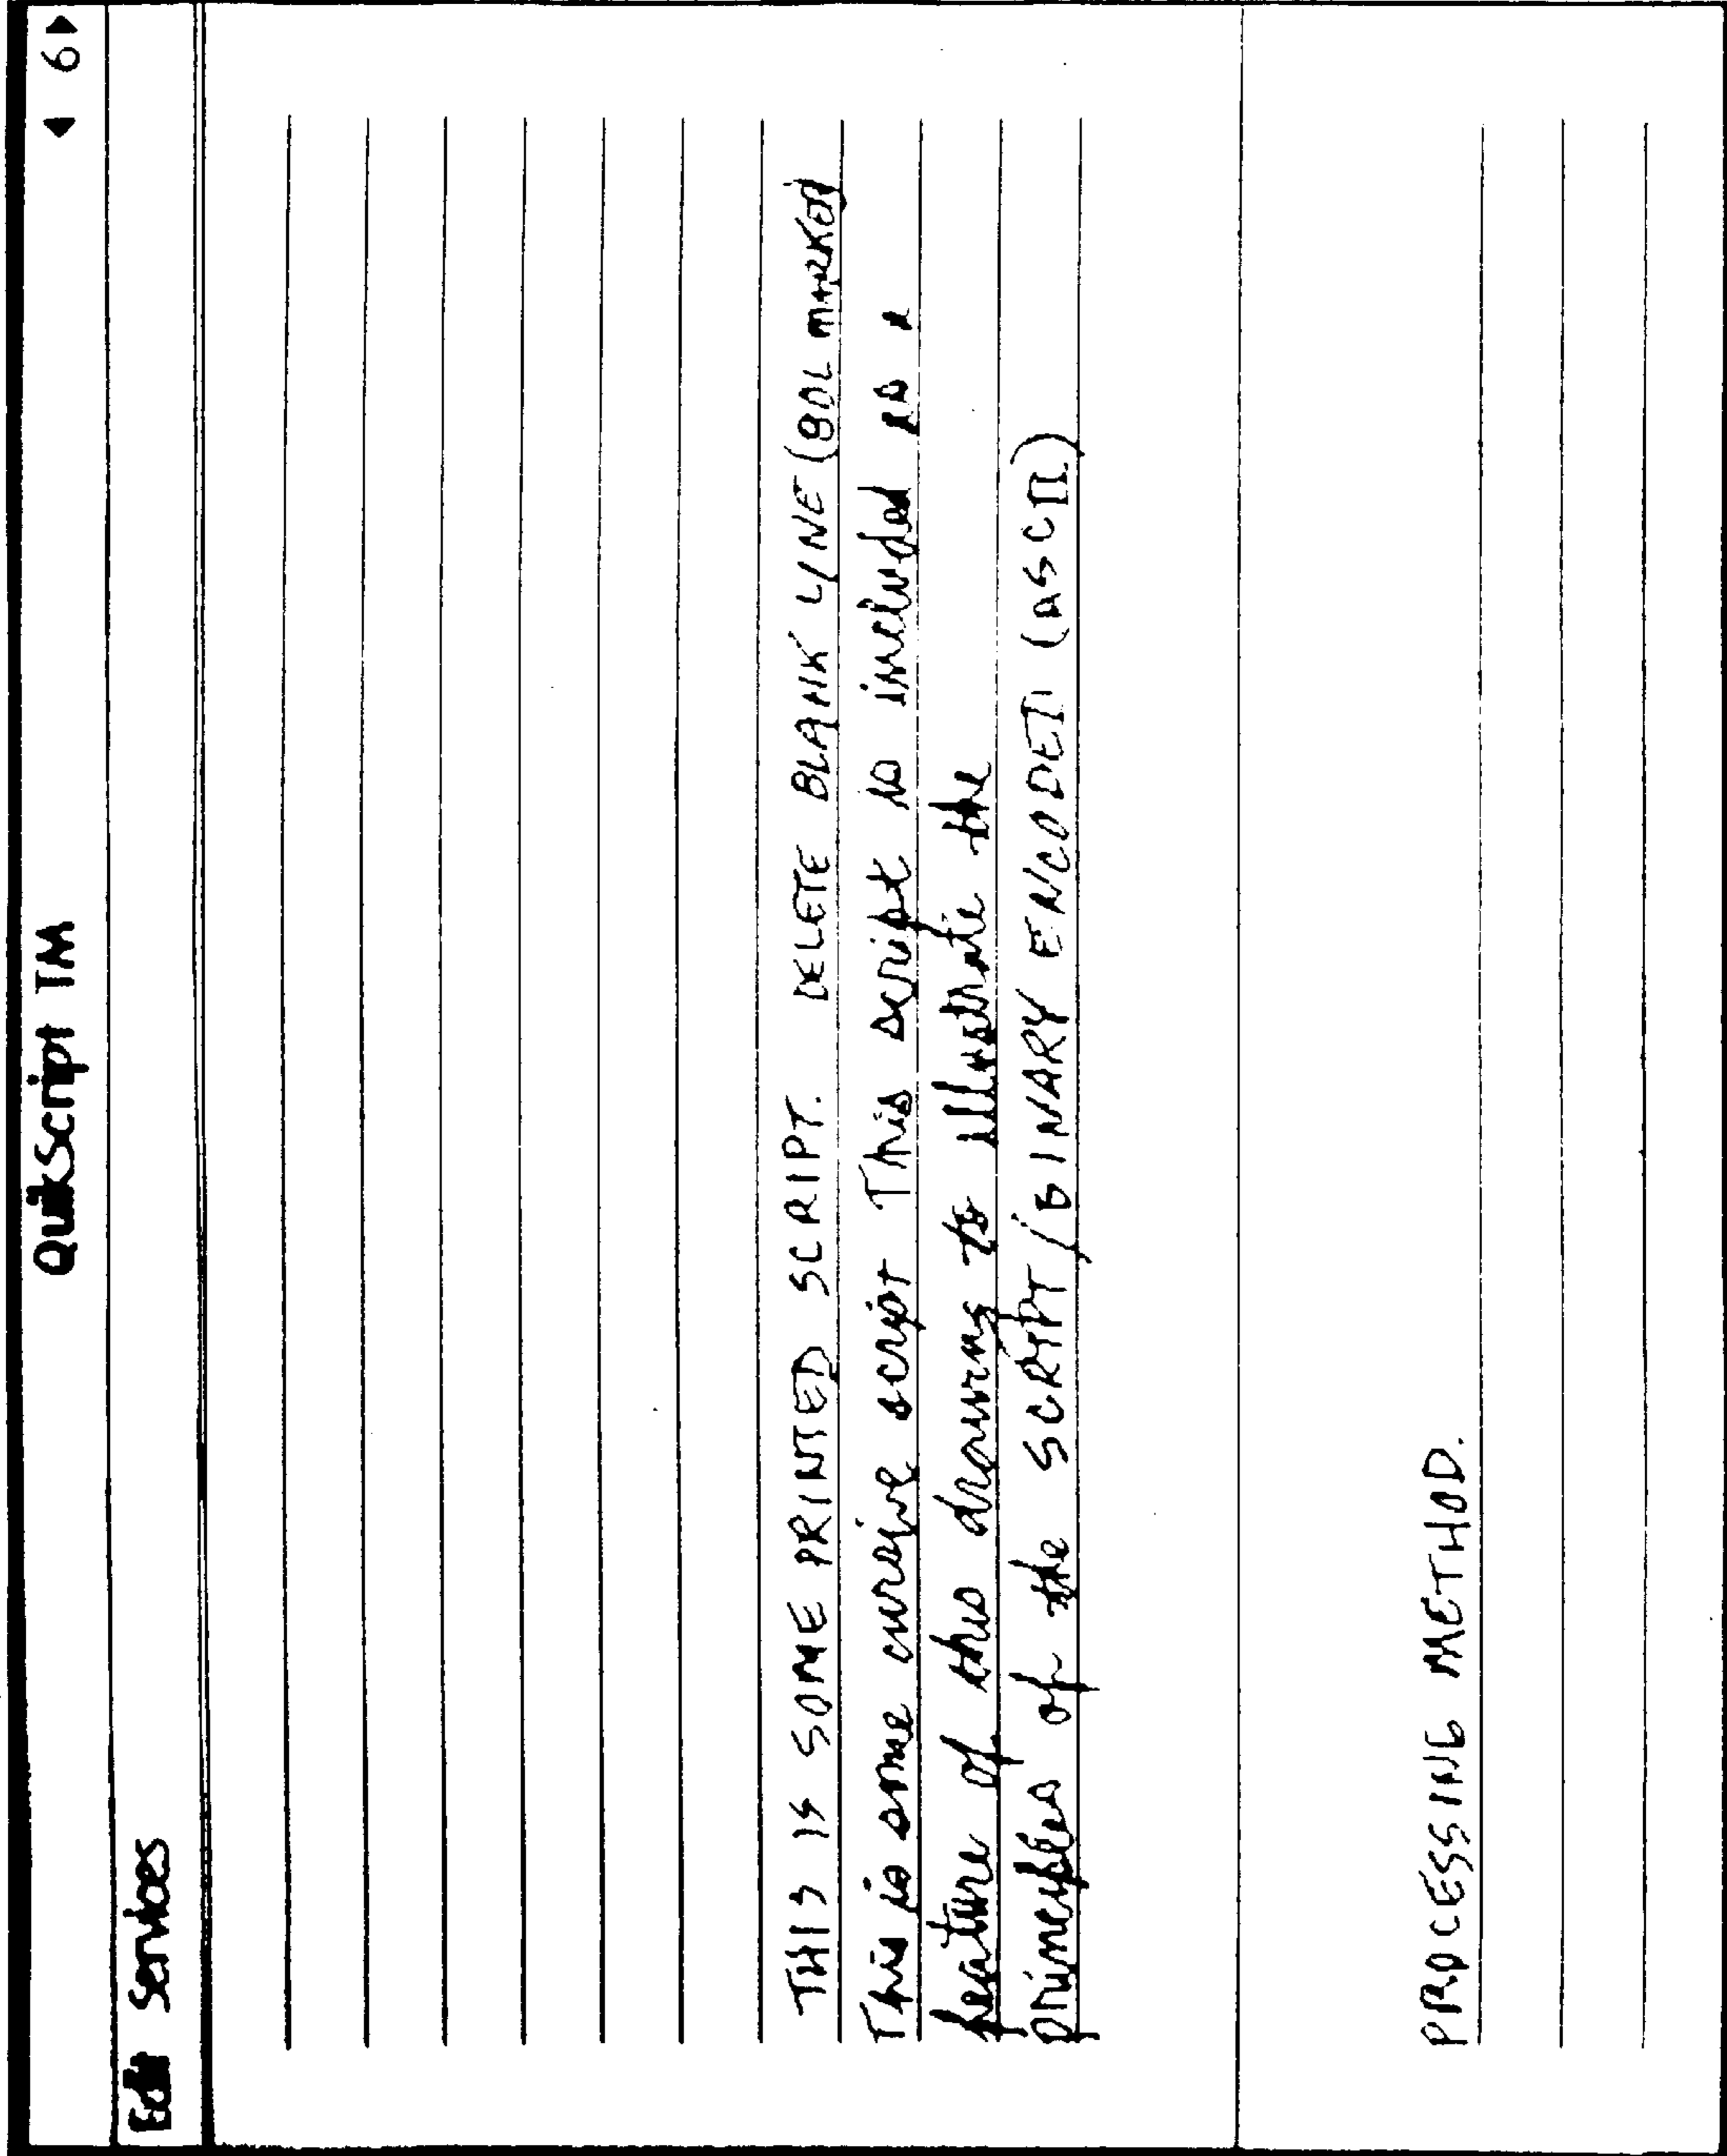 QuikScript TM
◀ 6 ▶
Edit Services
THIS IS SOME PRINTED SCRIPT. DELETE BLANK LINE (BOL MARKED
This is some cursive script This script is included as a
feature of this drawing to illustrate the
principles of the SCRIPT/BINARY ENCODED (ASCII)
PROCESSING METHOD.